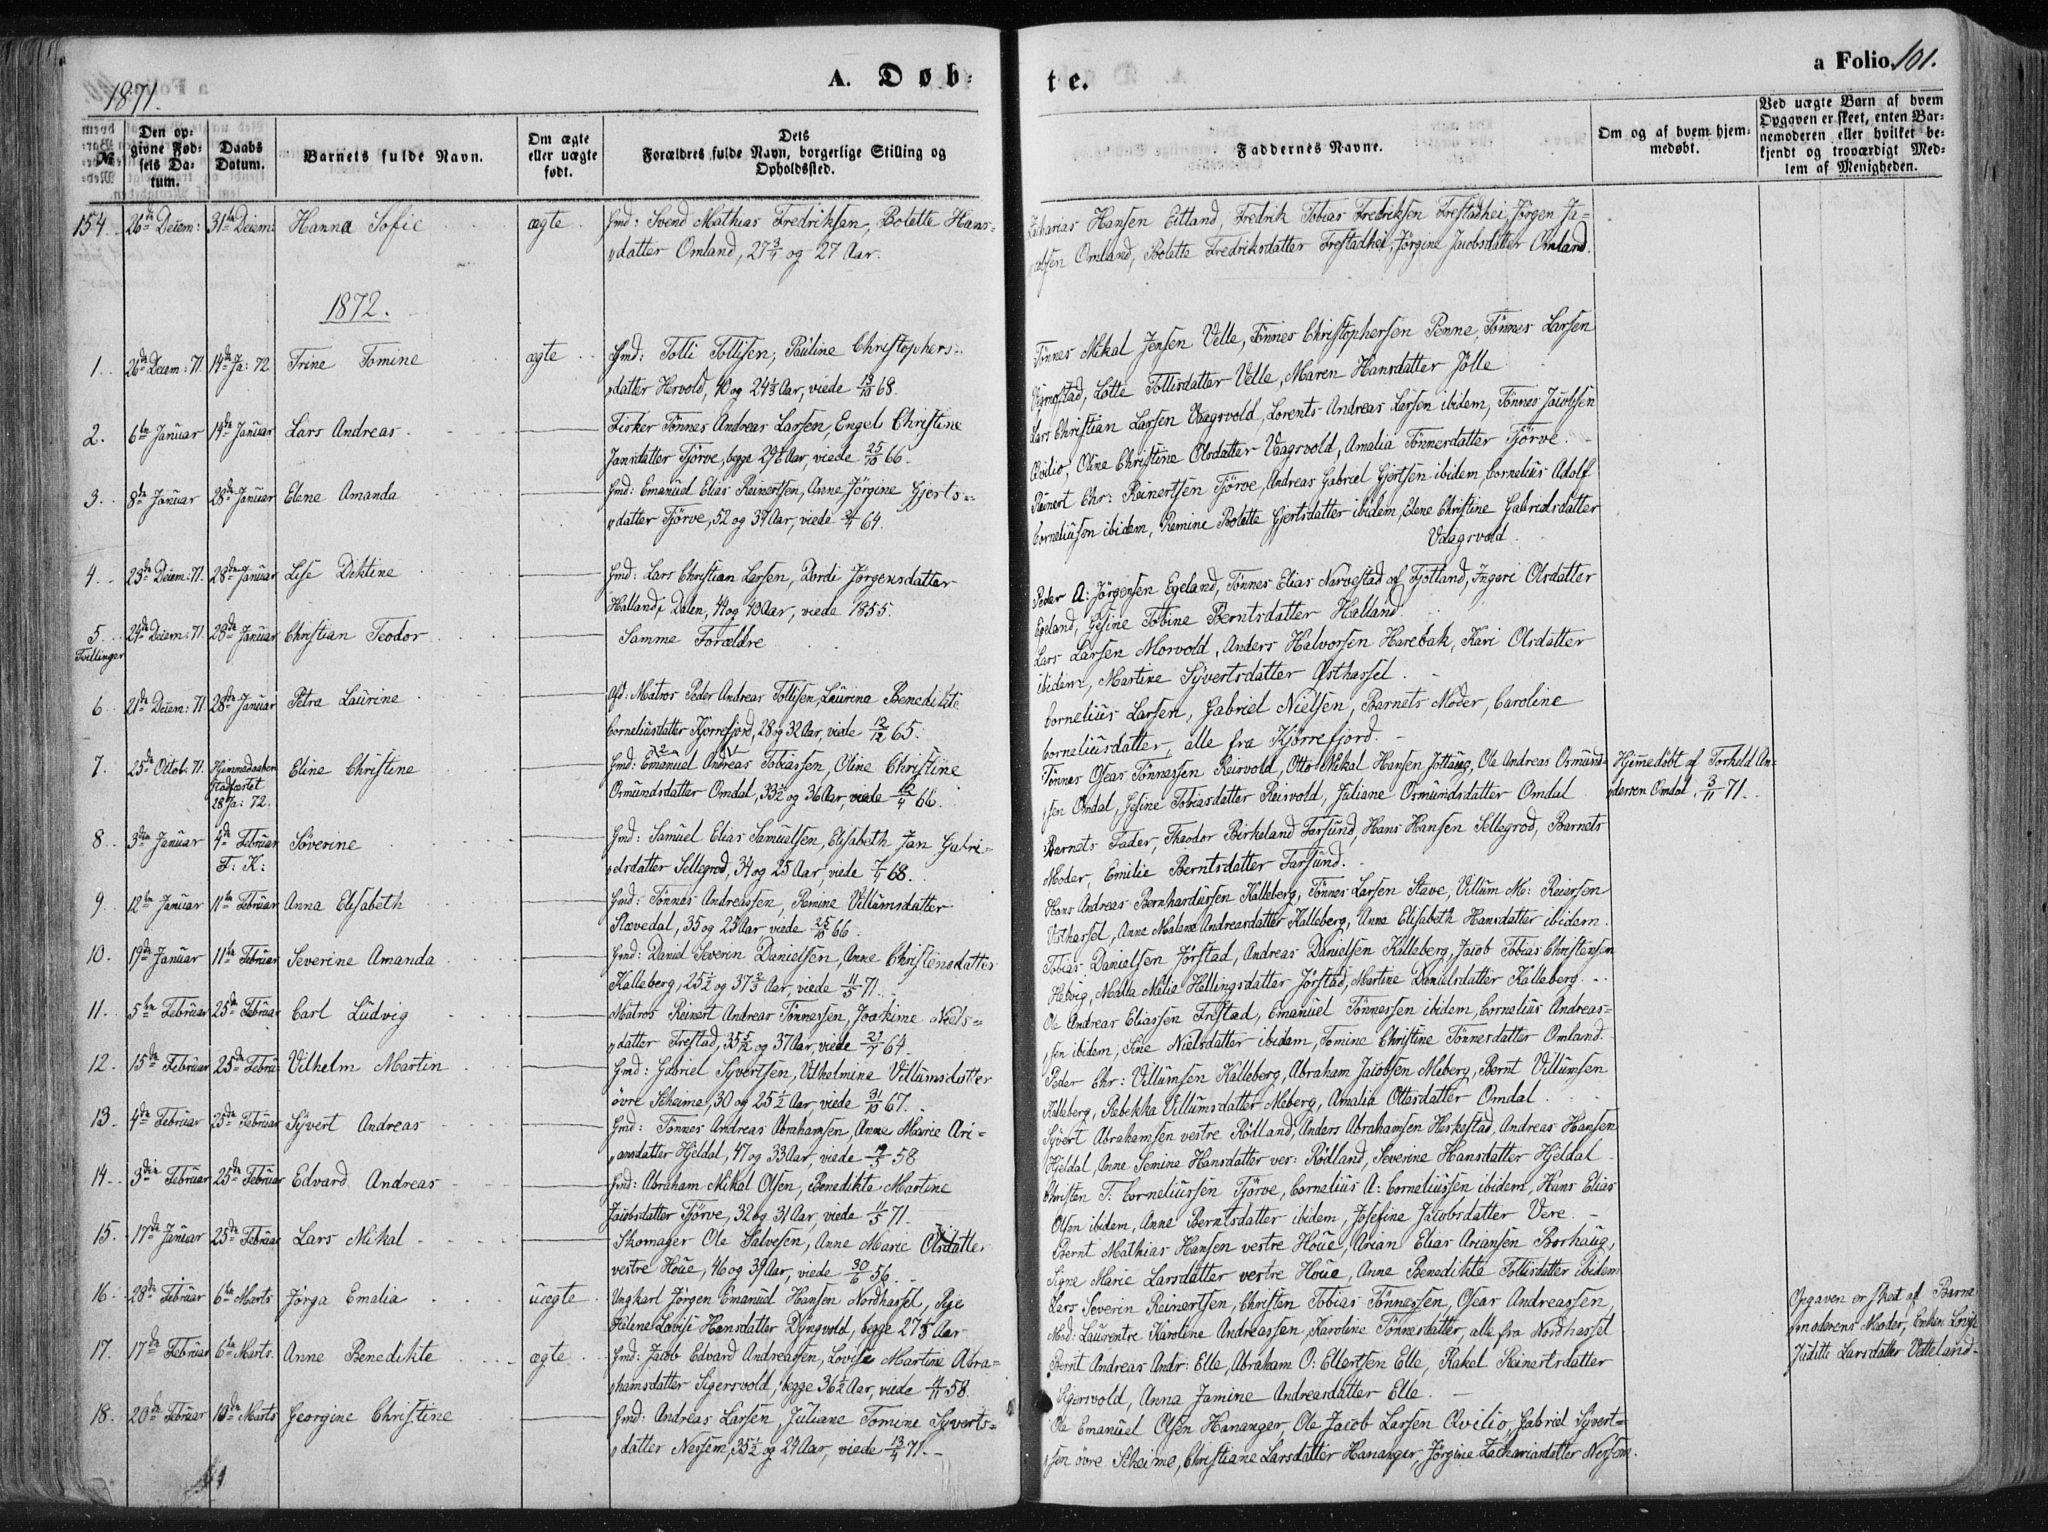 1871.
A. Døb-
te.
a Folio 101.
№
Den op-
givne Fød-
sels Da-
tum.
Daabs
Datum.
Barnets fulde Navn.
Om ægte
eller uægte
født.
Dets
Forældres fulde Navn, borgerlige Stilling og
Opholdssted.
Faddernes Navne.
Om og af hvem hjem-
medøbt.
Ved uægte Børn af hvem
Opgaven er skeet, enten Bar-
nemoderen eller hvilket be-
kjendt og troværdigt Med-
lem af Menigheden.
154 26de Decem: 31te Decem: Hanna Sofie ægte Gmd: Svend Mathias Fredriksen, Bolette Hans-
datter Omland, 27 3/4 og 27 Aar.
Zacharias Hansen Eitland, Fredrik Tobias Fredriksen Frestadhei, Jørgen Ja-
cobsen Omland, Bolette Fredriksdatter Frestadhei, Jørgine Jacobsdatter Omland.
1872.
1. 26de Decem: 71. 14de Ja: 72 Trine Tomine ægte Gmd: Tolli Tollisen, Pauline Christophers-
datter Hervold, 40 og 24 Aar, viede 68.
Tønnes Mikal Jensen Velle, Tønnes Christophersen Penne, Tønnes Larsen
Lotte Tollisdatter Velle, Maren Hansdatter Jølle
2. 6te Januar 14de Januar Lars Andreas Fisker Tønnes Andreas Larsen, Engel Christine
Jansdatter Tjørve, begge 29 Aar, viede 25/10 66.
Lars Christian Larsen Vaagsvold, Lorents Andreas Larsen ibidem, Tønnes Jacobsen
Qvilio, Oline Christine Olsdatter Vaagsvold, Amalia Tønnesdatter Tjørve.
3. 8de Januar 28de Januar Elene Amanda Gmd: Emanuel Elias Reinertsen, Anne Jørgine Gjerts-
datter Tjørve, 52 og 39 Aar, viede 64.
Reinert Chr: Reinertsen Tjørve, Andreas Gabriel Gjertsen ibidem, Cornelius Adolf
Corneliussen ibidem, Remine Bolette Gjertsdatter ibidem, Elene Christine Gabrielsdatter
Vaagsvold.
4. 23de Decem: 71. 28de Januar Lise Diktine Gmd: Lars Christian Larsen, Dordi Jørgensdatter
Halland, Dalen, 44 og 40 Aar, viede 1855.
Peder A: Jørgensen Egeland, Tønnes Elias Narvestad af Fjotland, Ingeri Olsdatter
Egeland, Gesine Tobine Berntsdatter Halland.
5. 24de Decem: 71. 28de Januar Christian Teodor Samme Forældre
Tvillinger
Lars Larsen Morvold, Anders Halvorsen Harebak, Kari Olsdatter
ibidem, Martine Syvertsdatter Østhassel.
6. 21de Decem: 71 28de Januar Petra Laurine Afd: Matros Peder Andreas Tollisen, Laurine Benedikte
Corneliusdatter Kjørrefjord, 28 og 32 Aar, viede 12/12 65.
Cornelius Larsen, Gabriel Nielsen, Barnets Moder, Caroline
Corneliusdatter, alle fra Kjørrefjord.
7. 25de Octob: 71. Hjemmedaaben
stadfæstet
28 Ja: 72. Eline Christine Gmd: Emanuel Andreas Tobiassen, Oline Christine
Osmundsdatter Omdal, 33 1/2 og 36 Aar, viede 66.
Tønnes Oscar Tønnessen Reirvold, Otto Mikal Hansen Jøttaug, Ole Andreas Osmund-
sen Omdal, Gesine Tobiasdatter Reisvold, Juliane Osmundsdatter Omdal
Hjemmedøbt af Torkild An-
dersen Omdal, 3/11 71.
8. 3die Januar 4de Februar
F: K: Severine Gmd: Samuel Elias Samuelsen, Elisabeth Jan Gabri-
elsdatter Sellegrod, 34 og 25 Aar, viede 68.
Barnets Fader, Theodor Birkeland Farsund, Hans Hansen Sellegrod, Barnets
Moder, Emilie Berntsdatter Farsund.
9. 12te Januar 11te Februar Anna Elisabeth Gmd: Tønnes Andreassen, Remine Villumsdatter
Stavedal, 35 og 23 Aar, viede 25/10 66.
Hans Andreas Bernhardussen Kalleberg, Tønnes Larsen Stave, Villum M: Reiersen
Vesthassel, Anne Malene Andreasdatter Kalleberg, Anna Elisabeth Hansdatter ibidem.
10. 19de Januar 11te Februar Severine Amanda Gmd: Daniel Severin Danielsen, Anne Christensdatter
Kalleberg, 25 1/2 og 37 Aar, viede 71.
Tobias Danielsen Jørstad, Andreas Danielsen Kalleberg, Jacob Tobias Christensen
Hebvig, Malla Melia Hellingsdatter Jørstad, Martine Danielsdatter Kalleberg.
11. 5te Februar 25de Februar Carl Ludvig Matros Reinert Andreas Tønnessen, Joakime Niels-
datter Frestad, 35 og 37 Aar, viede 64.
Ole Andreas Eliassen Frestad, Emanuel Tønnessen ibidem, Cornelius Andreas-
sen ibidem, Sine Nielsdatter ibidem, Tomine Christine Tønnesdatter Omland.
12. 15de Februar 25de Februar Vilhelm Martin Gmd: Gabriel Syvertsen, Vilhelmine Villumsdatter
øvre Skeime, 30 og 25 1/2 Aar, viede 31/10 67.
Peder Chr: Villumsen Kalleberg, Abraham Jacobsen Meberg, Bernt Villumsen
Kalleberg, Rebekka Villumsdatter Meberg, Amalia Ottesdatter Omdal.
13. 4de Februar 25de Februar Syvert Andreas Gmd: Tønnes Andreas Abrahamsen, Anne Marie Ari-
ansdatter Hjeldal, 47 og 33 Aar, viede 58
Syvert Abrahamsen vestre Rødland, Anders Abrahamsen Herkestad, Andreas Hansen
Hjeldal, Anne Semine Hansdatter ver: Rødland, Severine Hansdatter Hjeldal
14. 3die Februar 25de Februar Edvard Andreas Gmd: Abraham Mikal Olsen, Benedikte Martine
Jacobsdatter Tjørve, 32 og 31 Aar, viede 71.
Christen T: Corneliussen Tjørve, Cornelius A: Corneliussen ibidem, Hans Elias
Olsen ibidem, Anne Berntsdatter ibidem, Josefine Jacobsdatter Vere.
15. 17de Januar 25de Februar Lars Mikal Skomager Ole Salvesen, Anne Marie Olsdatter
vestre Houe, 46 og 39 Aar, viede 30/6 56.
Bernt Mathias Hansen vestre Houe, Arian Elias Ariansen Borhaug,
Signe Marie Larsdatter vestre Houe, Anne Benedikte Tollisdatter ibidem
16. 28de Februar 6te Marts Jørga Emalia uægte Ungkarl Jørgen Emanuel Hansen Nordhassel, Pige
Helene Lovise Hansdatter Dyngvold, begge 27 Aar
Lars Severin Reinertsen, Christen Tobias Tønnessen, Oscar Andreassen,
Mad: Laurentse Karoline Andreassen, Karoline Tønnesdatter, alle fra Nordhassel
Opgaven er skeet af Barne
moderens Moder, Enken Lovise
Juditte Larsdatter Vetteland.
17. 17de Februar 6te Marts. Anne Benedikte ægte Gmd: Jacob Edvard Andreassen, Lovise Martine Abra-
hamsdatter Sigersvold, begge 36 1/2 Aar, viede 58.
Bernt Andreas Andr: Elle, Abraham O: Ellertsen Elle, Rakel Reinertsdatter
Sigersvold, Anna Jamine Andreasdatter Elle.
18. 20de Februar 10de Marts Georgine Christine Gmd: Andreas Larsen, Juliane Tomine Syverts-
datter Nessem, 35 1/2 og 24 Aar, viede 71.
Ole Emanuel Olsen Hananger, Ole Jacob Larsen Qvilio, Gabriel Syvert-
sen øvre Skeime, Christiane Larsdatter Hananger, Jørgine Zachariasdatter Nessem.